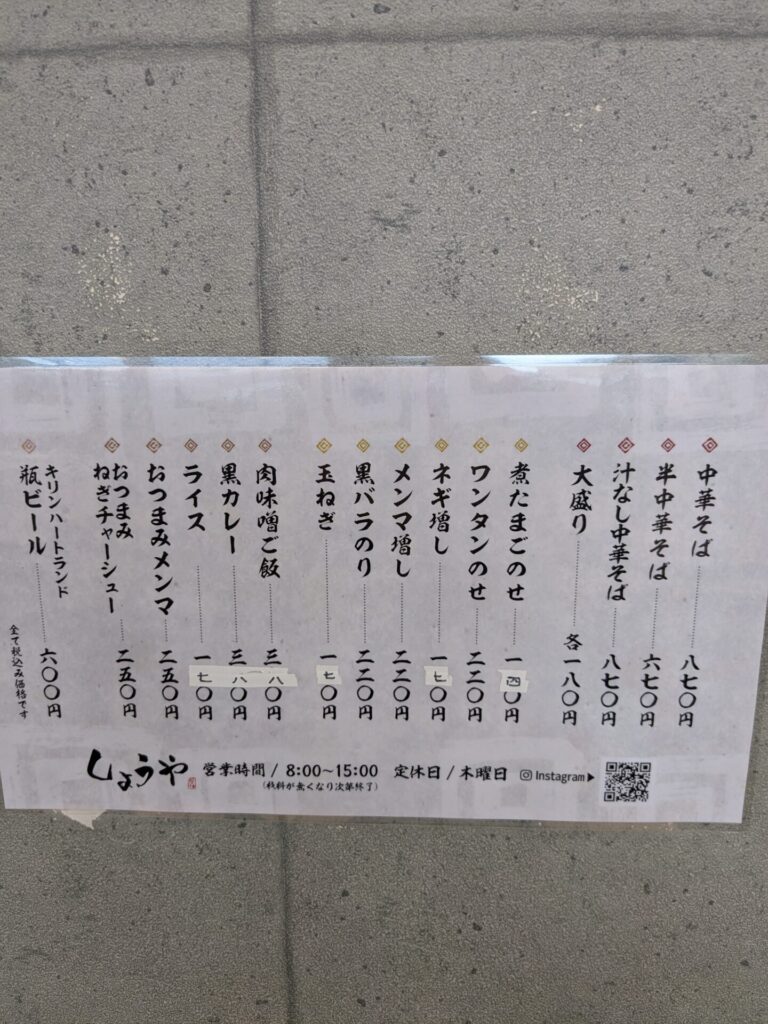 中華そば 八七〇円
半中華そば 六七〇円
汁なし中華そば 八七〇円
大盛り 各一八〇円
煮たまごのせ 一四〇円
ワンタンのせ 二二〇円
ネギ増し 一七〇円
メンマ増し 二二〇円
黒バラのり 二二〇円
玉ねぎ 一七〇円
肉味噌ご飯 三八〇円
黒カレー 三八〇円
ライス 一七〇円
おつまみメンマ 二五〇円
おつまみ
ねぎチャーシュー 二五〇円
キリンハートランド
瓶ビール 六〇〇円
全て税込み価格です
しょうや 営業時間 / 8:00~15:00 定休日 / 木曜日 Instagram▶
(材料が無くなり次第終了)